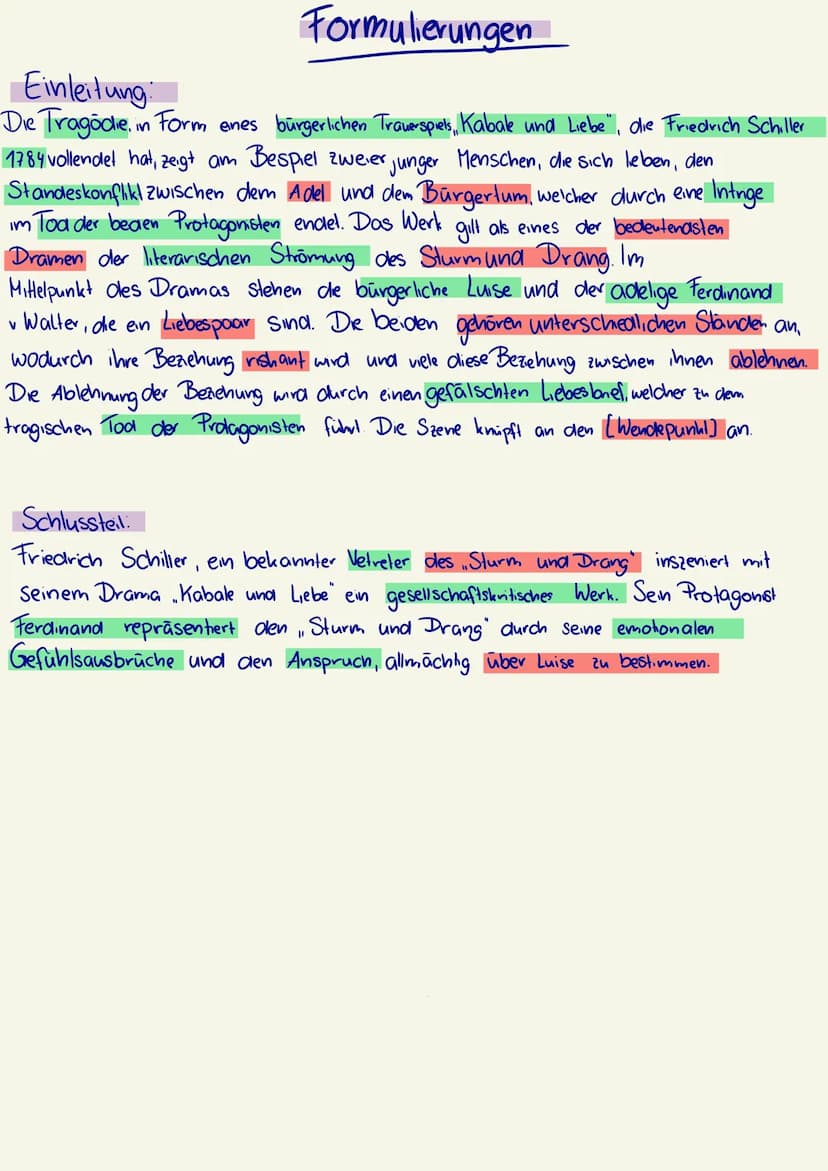 Formulierungen
Einleitung:
Die Tragödie, in Form eines bürgerlichen Trauerspiels „Kabale und Liebe", die Friedrich Schiller
1784 vollendet hat, zeigt am Bespiel zweier junger Menschen, die sich lieben, den
Standeskonflikt zwischen dem Adel und dem Bürgertum, welcher durch eine Intrige
im Tod der beiden Protagonisten endet. Das Werk gilt als eines der bedeutendsten
Dramen der literarischen Strömung des Sturm und Drang. Im
Mittelpunkt des Dramas stehen die bürgerliche Luise und der adelige Ferdinand
v Walter, die ein Liebespaar sind. Die beiden gehören unterschiedlichen Ständen an,
wodurch ihre Beziehung riskant wird und viele diese Beziehung zwischen ihnen ablehnen.
Die Ablehnung der Beziehung wird durch einen gefälschten Liebesbrief, welcher zu dem
tragischen Tod der Protagonisten führt. Die Szene knüpft an den [Wendepunkt] an.
Schlussteil:
Friedrich Schiller, ein bekannter Vetreter des „Sturm und Drang" inszeniert mit
seinem Drama „Kabale und Liebe" ein gesellschaftskritisches Werk. Sein Protagonist
Ferdinand repräsentiert den „Sturm und Drang" durch seine emotionalen
Gefühlsausbrüche und den Anspruch, allmächtig über Luise zu bestimmen.